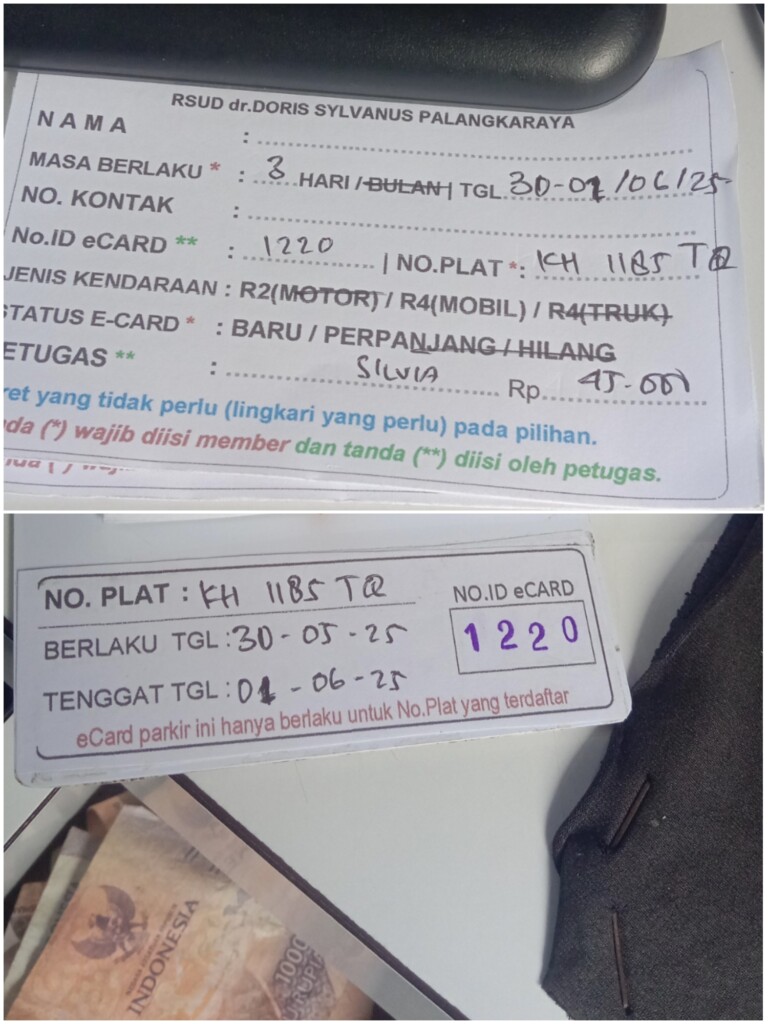 RSUD dr.DORIS SYLVANUS PALANGKARAYA
N A M A :
MASA BERLAKU * : 3 HARI / BULAN | TGL 30-01/06/25
NO. KONTAK :
No.ID eCARD ** : 1220 | NO.PLAT *: KH 1185 TQ
JENIS KENDARAAN : R2(MOTOR) / R4(MOBIL) / R4(TRUK)
STATUS E-CARD * : BARU / PERPANJANG / HILANG
ETUGAS ** : SILVIA Rp. 45.000
ret yang tidak perlu (lingkari yang perlu) pada pilihan.
da (*) wajib diisi member dan tanda (**) diisi oleh petugas.
NO. PLAT : KH 1185 TQ
NO.ID eCARD
BERLAKU TGL : 30-05-25
1220
TENGGAT TGL : 01-06-25
eCard parkir ini hanya berlaku untuk No.Plat yang terdaftar
INDONESIA